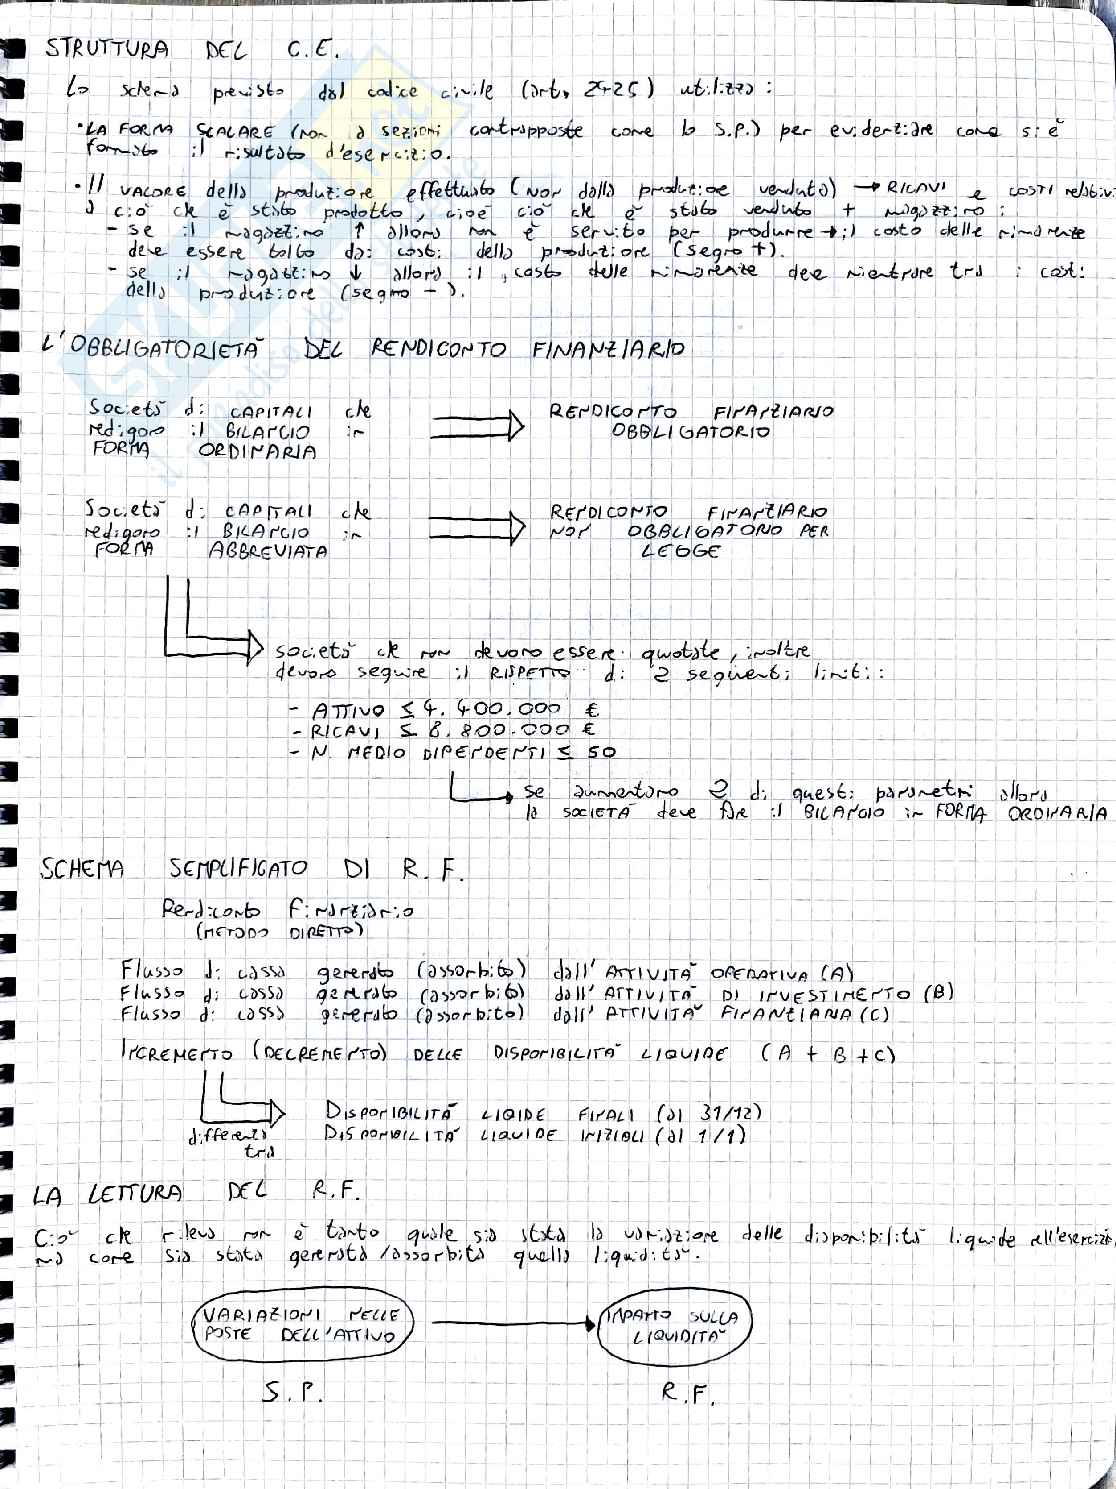 STRUTTURA DEL C.E.
Lo schema previsto dal codice civile (art. 2425) utilizza:
•LA FORMA SCALARE (non a sezioni contrapposte come lo S.P.) per evidenziare come si è
formato il risultato d'esercizio.
•Il VALORE della produzione effettuata (NON dalla produzione venduta) → RICAVI e COSTI relativi
a ciò che è stato prodotto, cioè ciò che è stato venduto + magazzino:
- se il magazzino ↑ allora non è servito per produrre → il costo delle rimanenze
deve essere tolto dai costi della produzione (segno +).
- se il magazzino ↓ allora il costo delle rimanenze deve rientrare tra i costi
della produzione (segno -).
L'OBBLIGATORIETÀ DEL RENDICONTO FINANZIARIO
Società di CAPITALI che
redigono il BILANCIO in
FORMA ORDINARIA
RENDICONTO FINANZIARIO
OBBLIGATORIO
Società di CAPITALI che
redigono il BILANCIO in
FORMA ABBREVIATA
RENDICONTO FINANZIARIO
NON OBBLIGATORIO PER
LEGGE
società che non devono essere quotate, inoltre
devono seguire il RISPETTO di 2 seguenti limiti:
- ATTIVO ≤ 4.400.000 €
- RICAVI ≤ 8.800.000 €
- N. MEDIO DIPENDENTI ≤ 50
se aumentano 2 di questi parametri allora
la SOCIETÀ deve fare il BILANCIO in FORMA ORDINARIA
SCHEMA SEMPLIFICATO DI R.F.
Rendiconto finanziario
(METODO DIRETTO)
Flusso di cassa generato (assorbito) dall'ATTIVITÀ OPERATIVA (A)
Flusso di cassa generato (assorbito) dall'ATTIVITÀ DI INVESTIMENTO (B)
Flusso di cassa generato (assorbito) dall'ATTIVITÀ FINANZIARIA (C)
INCREMENTO (DECREMENTO) DELLE DISPONIBILITÀ LIQUIDE (A + B + C)
differenza
tra
DISPONIBILITÀ LIQIDE FINALI (al 31/12)
DISPONIBILITÀ LIQUIDE INIZIALI (al 1/1)
LA LETTURA DEL R.F.
Ciò che rileva non è tanto quale sia stata la variazione delle disponibilità liquide all'esercizio,
ma come sia stata generata/assorbita quella liquidità.
VARIAZIONI NELLE
POSTE DELL'ATTIVO
IMPATTO SULLA
LIQUIDITÀ
S.P.
R.F.